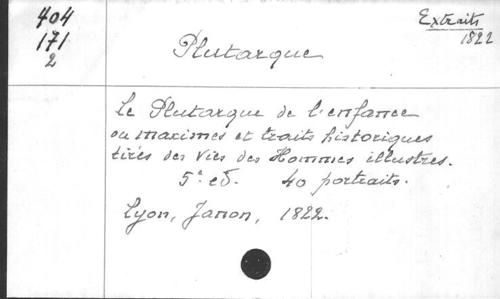 404
171
2
Extraits
1822
Plutarque
Le Plutarque de l'enfance
ou maximes et traits historiques
tirés des Vies des Hommes illustres.
5e ed. 40 portraits.
Lyon, Janon, 1822.